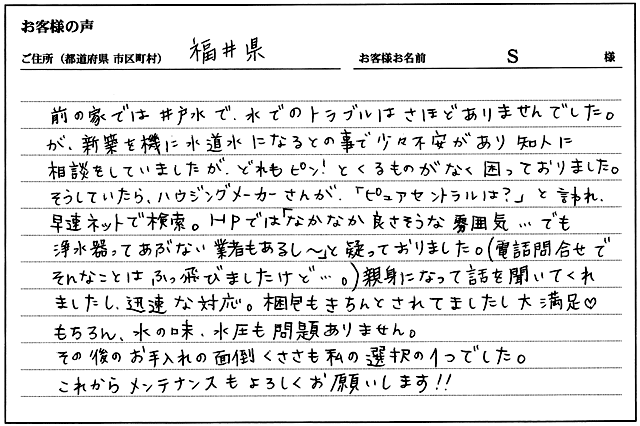 お客様の声
ご住所（都道府県 市区町村） 福井県 お客様お名前 S 様
前の家では井戸水で、水でのトラブルはさほどありませんでした。
が、新築を機に水道水になるとの事で少々不安があり知人に
相談をしていましたが、どれもピン!とくるものがなく困っておりました。
そうしていたら、ハウジングメーカーさんが、「ピュアセントラルは?」と言われ、
早速ネットで検索。HPでは「なかなか良さそうな雰囲気…でも
浄水器ってあぶない業者もあるし〜」と疑っておりました。(電話問合せで
そんなことはふっ飛びましたけど…。)親身になって話を聞いてくれ
ましたし、迅速な対応。梱包もきちんとされてましたし大満足♡
もちろん、水の味、水圧も問題ありません。
その後のお手入れの面倒くささも私の選択の1つでした。
これからメンテナンスもよろしくお願いします!!